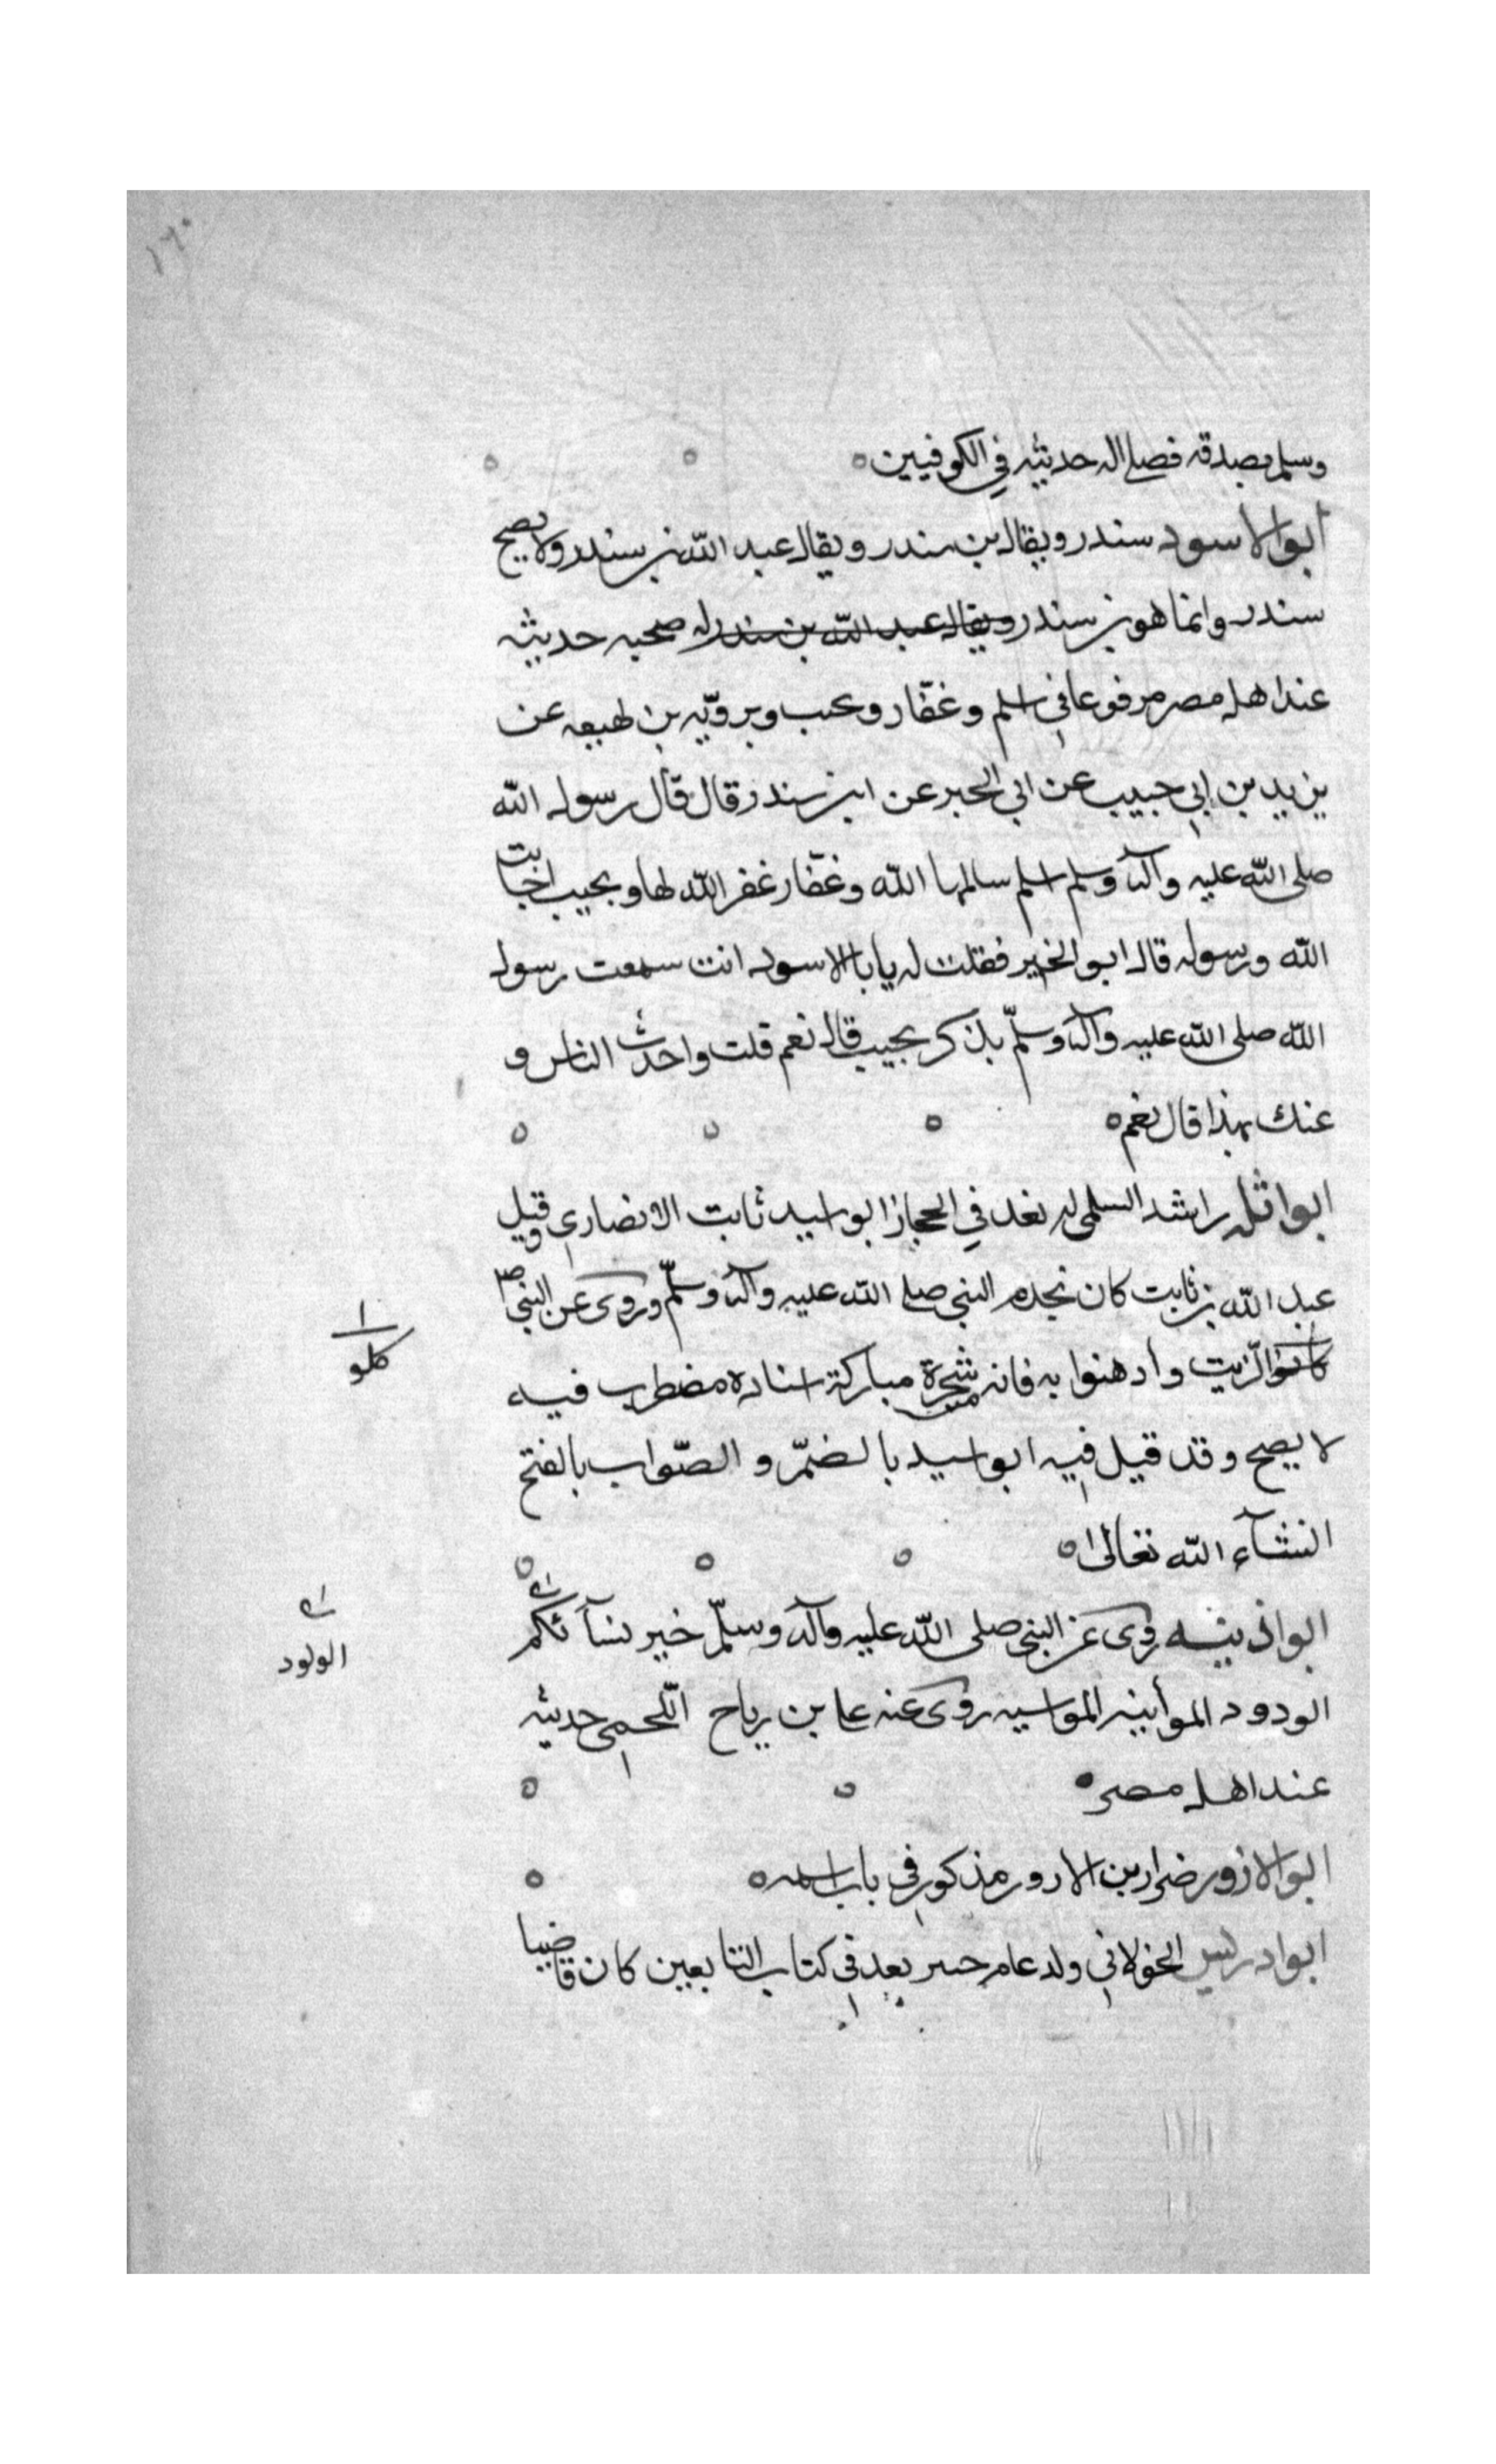 ١٦٠
وسلم بصدقه فصلي اله حديثه في الكوفيين
ابو الاسود سندر ويقال بن سندر ويقال عبد الله بن سندر ولا يصح
سندر وانما هو بن سندر ويقال عبد الله بن سندر له صحبه حديثه
عند اهل مصر مرفوعا في اسلم وغفّار و ويرويّه بن لهيعه عن
يزيد بن ابي حبيب عن ابي الخير عن ابن سندر قال قال رسول الله
صلى الله عليه وآله وسلم اسلم سالمها الله وغفّار غفر الله لها وبجيب اجابت
الله ورسوله قال ابو الخير فقلت له يابا الاسود انت سمعت رسول
الله صلى الله عليه وآله وسلّم يذكر بجيب قال نعم قلت واحدث الناس و
عنك بهذا قال نعم
ابو اثله راشد السلمي له نعد في الحجاز ابو اسيد ثابت الانصاري وقيل
عبد الله بن ثابت كان نجده النبي صلى الله عليه وآله وسلّم وروى عن النبي ص
الزيت وادهنوا به فانه شجرة مباركة اسناده مضطرب فيه
لا يصح وقد قيل فيه ابو اسيد بالضمّ و الصّواب بالفتح
انشآء الله تعالى
ابو اذينه روى عن النبي صلى الله عليه وآله وسلّم خير نسآئكم
الودود الموأتيه المواسيه روى عنه علي بن رباح اللّخمي حديثه
عند اهل مصر
ابو الازور ضرار بن الازور مذكور في باب اسمه
ابو ادريس الخولاني ولد عام يعد في كتاب التابعين كان قاضيا
كلو
الولود